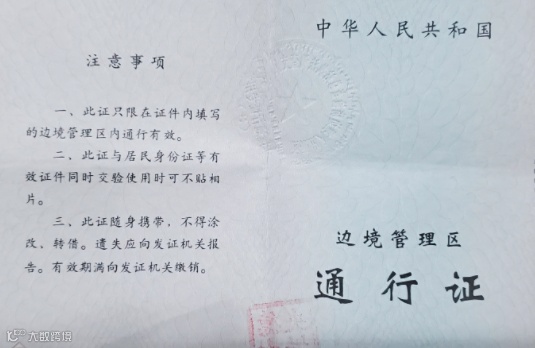 注意事项
一、此证只限在证件内填写
的边境管理区内通行有效。
二、此证与居民身份证等有
效证件同时交验使用时可不贴相
片。
三、此证随身携带，不得涂
改、转借。遗失应向发证机关报
告。有效期满向发证机关缴销。
中华人民共和国
边境管理区
通行证
大数跨境